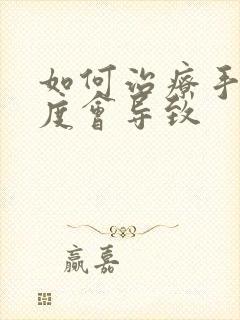 如何治疗手
度会导致
赢嘉